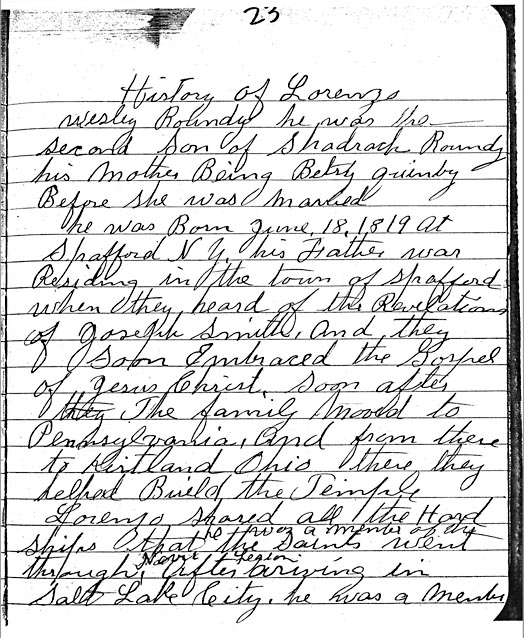 23
History of Lorenzo
Wesley Roundy he was the
second son of Shadrack Roundy
his Mother Being Betsy quimby
Before she was married
he was Born June, 18, 1819 At
Spafford N Y. his Father was
Residing in the town of Spafford
when they heard of the Revelations
of Joseph Smith, And they
Soon Embraced the Gospel
of Jesus Christ. Soon after
they The family Moved to
Pennsylvania, And from there
to Kirtland Ohio there they
helped Build the Temple
Lorenzo shared all the Hard
he was a member of the
ships that the Saints went
Legion
through, After ariving in
Salt Lake City. he was a Member